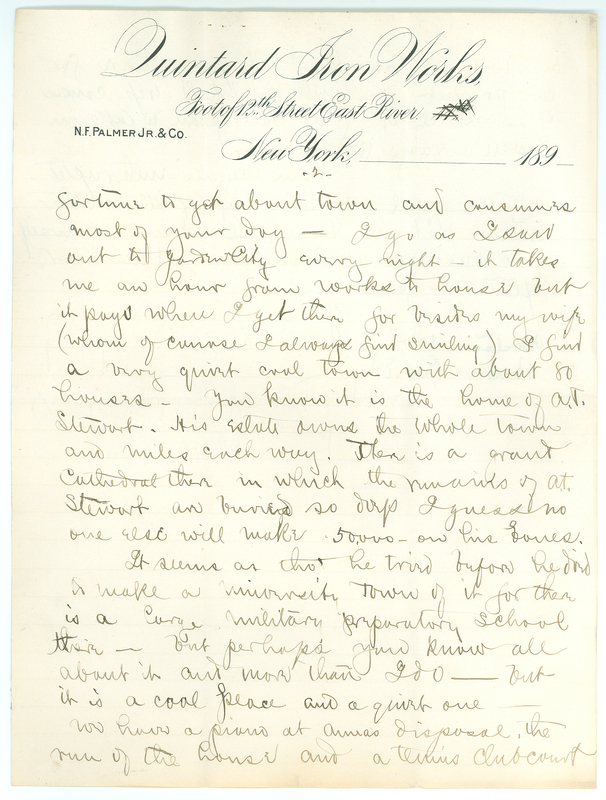 Quintard Iron Works,
Foot of 12th Street East River.
N.F. PALMER JR. & CO.
New York, 189
-2-
fortune to get about town and consumes
most of your day — I go as I said
out to Garden City every night — it takes
me an hour from works to house but
it pays when I get there for besides my wife
(whom of course I always find smiling) I find
a very quiet cool town with about 80
houses - You know it is the home of A.T.
Stewart. His estate owns the whole town
and miles each way. There is a grand
Cathedral there in which the remains of A.T.
Stewart are buried so deep I guess no
one else will make 50,000 - on his bones.
It seems as tho' he tried before he died
to make a university town of it for there
is a large military preparatory school
there — but perhaps you know all
about it and more than I do — but
it is a cool place and a quiet one —
We have a piano at disposal, the
run of the house and a tennis club court